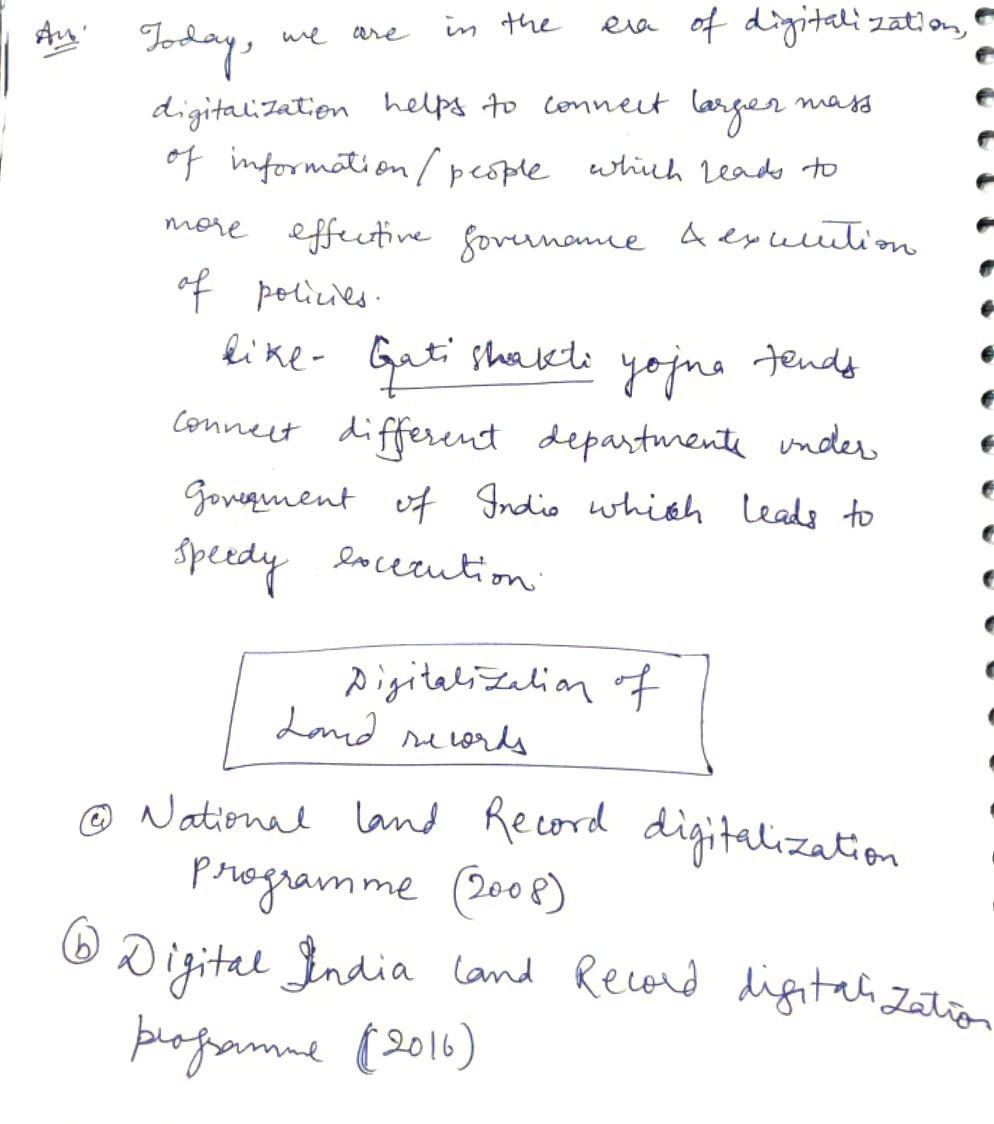 Ans' Today, we are in the era of digitalization,
digitalization helps to connect larger mass
of information/people which leads to
more effective governance & execution
of policies.
like - Gati shakti yojna tends
connect different departments under
Government of India which leads to
speedy excecution.
Digitalization of
Land records
(a) National land Record digitalization
Programme (2008)
(b) Digital India land Record digitalization
programme (2016)